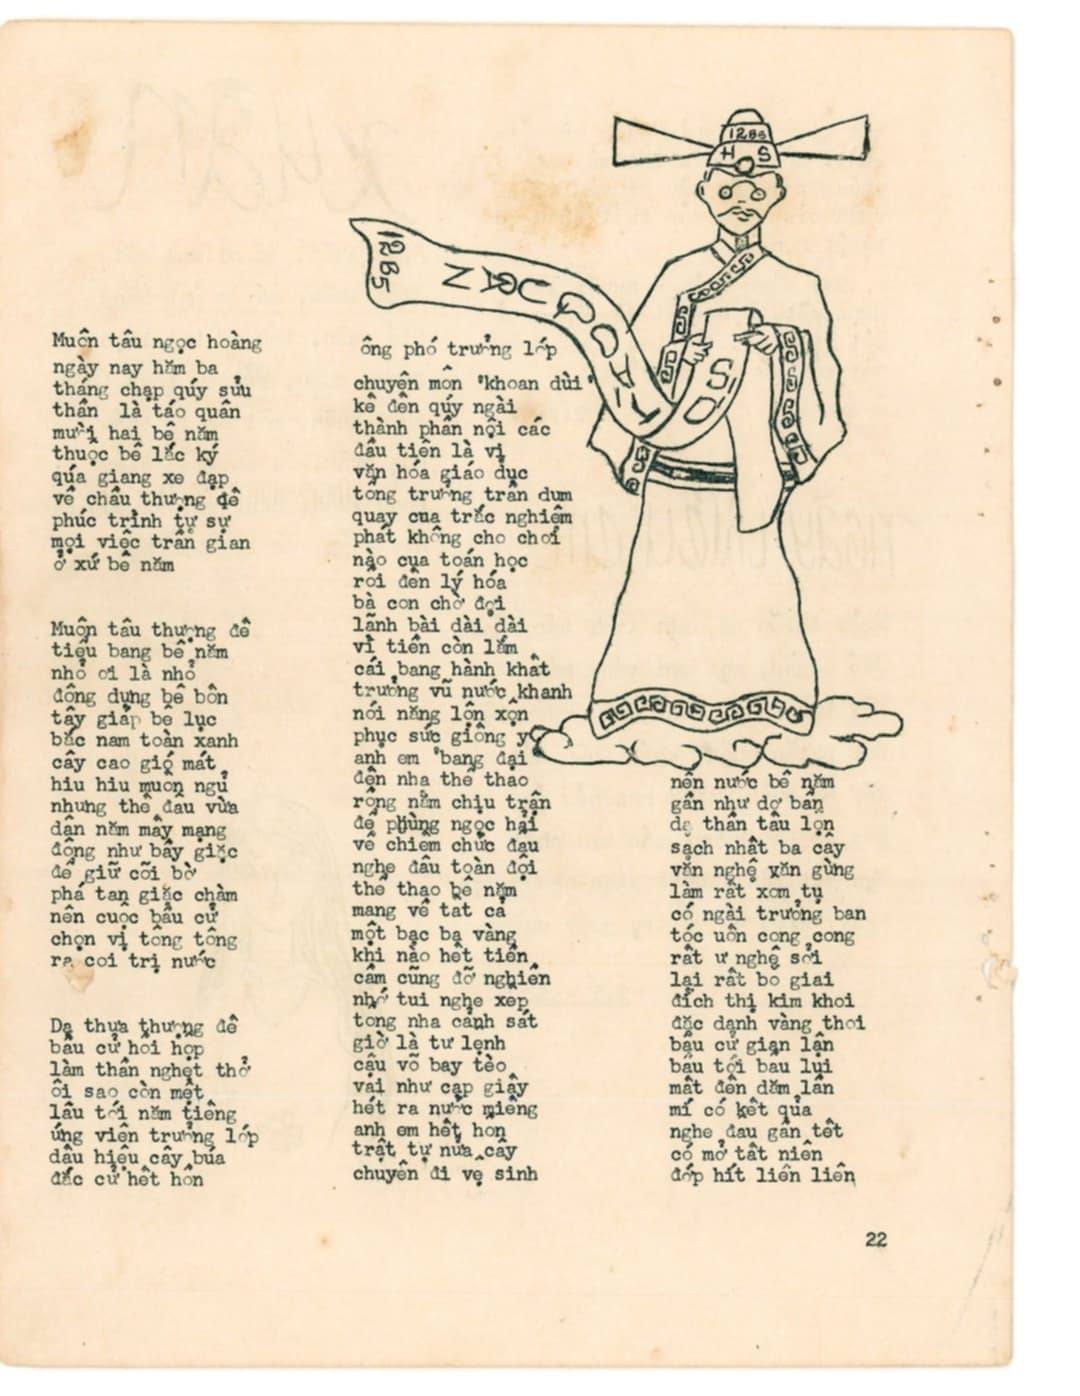 12B5
H S
SỚ TÁO QUÂN 12B5
Muôn tâu ngọc hoàng
ngày nay hăm ba
tháng chạp qúy sửu
thần là táo quân
mười hai bê năm
thuộc bê lắc ký
qúa giang xe đạp
về chầu thượng đế
phúc trình tự sự
mọi việc trần gian
ở xứ bê năm
Muôn tâu thượng đế
tiểu bang bê năm
nhỏ ơi là nhỏ
đông dựng bê bốn
tây giáp bê lục
bắc nam toàn xanh
cây cao gió mát
hiu hiu muon ngủ
nhưng thế đâu vừa
dân năm mấy mạng
đông như bầy giặc
để giữ cõi bờ
phá tan giặc chàm
nên cuộc bầu cử
chọn vị tổng tổng
ra coi trị nước
Dạ thưa thượng đế
bầu cử hồi họp
làm thần nghẹt thở
ôi sao còn mệt
lâu tới năm tiếng
ứng viên trưởng lớp
dấu hiệu cây búa
đắc cử hết hồn
ông phó trưởng lớp
chuyên môn "khoan dùi"
kế đến qúy ngài
thành phần nội các
đầu tiên là vị
văn hóa giáo dục
tổng trưởng trần dum
quay cua trắc nghiệm
phát không cho chơi
nào cua toán học
rồi đến lý hóa
bà con chờ đợi
lãnh bài dài dài
vì tiền còn lắm
cái bang hành khất
trưởng vũ nước khanh
nói năng lộn xộn
phục sức giống y
anh em "bang đại"
đến nha thể thao
rồng nằm chịu trận
để phùng ngọc hải
về chiếm chức đầu
nghe đâu toàn đội
thể thao bê năm
mang về tat cả
một bạc ba vàng
khi nào hết tiền
cầm cũng đỡ nghiền
nhớ tui nghe xep
tong nha cảnh sát
giờ là tư lệnh
cậu võ bay tèo
vai như cạp giấy
hét ra nước miếng
anh em hết hon
trật tự nửa cây
chuyển đi vệ sinh
nên nước bê năm
gần như dơ bẩn
dạ thần tâu lộn
sạch nhất ba cây
văn nghệ văn gừng
làm rất xom tụ
có ngài trưởng ban
tóc uốn cong cong
rất ư nghệ sởi
lại rất bô giai
đích thị kim khoi
đặc danh vàng thoi
bầu cử gian lận
bầu tới bau lui
mất đến dăm lần
mí có kết qủa
nghe đau gần tết
có mở tất niên
đớp hít liên liên
22